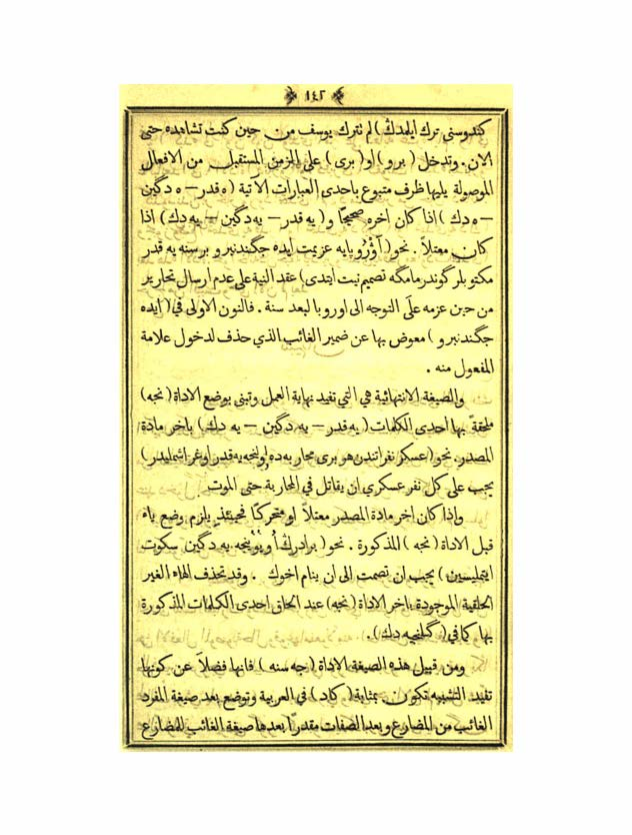 ١٤٢
كندوسنى ترك ايلمدك) لم نترك يوسف من حين كنت تشاهده حتى
الان. وتدخل (برو) او (برى) على المزمن المستقبل من الافعال
الموصولة يليها ظرف متبوع باحدى العبارات الآتية (ه قدر — ه دگين
— ه دك) اذا كان اخره صحيحًا و(يه قدر — يه دگين — يه دك) اذا
كان معتلاً. نحو (آوْرُوپايه عزيمت ايده جگندنبرو برسنه يه قدر
مكتوبلر گوندرمامگه تصميم نيت ايتدى) عقد النية على عدم ارسال تحارير
من حين عزمه على التوجه الى اوروبا لبعد سنة. فالنون الاولى في (ايده
جگندنبرو) معوض بها عن ضمير الغائب الذي حذف لدخول علامة
المفعول منه.
والصيغة الانتهائية هي التي تفيد نهاية العمل وتبنى بوضع الاداة (نجه)
ملحقة بها احدى الكلمات (يه قدر — يه دگين — يه دك) باخر مادة
المصدر. نحو (عسكر نفراتندن هر برى محاربه ده اولنجه يه قدر اوغراشمليدر)
يجب على كل نفر عسكري ان يقاتل في المحاربة حتى الموت
واذا كان اخر مادة المصدر معتلاً او متحركًا فحينئذٍ يلزم وضع ياء
قبل الاداة (نجه) المذكورة. نحو (برادرك اويُويُنجه يه دگين سكوت
ايتمليسين) يجب ان تصمت الى ان ينام اخوك. وقد تحذف الهاء الغير
الحلقية الموجودة باخر الاداة (نجه) عند الحاق احدى الكلمات المذكورة
بها كما في (گلنجيه دك).
ومن قبيل هذه الصيغة الاداة (جه سنه) فانها فضلاً عن كونها
تفيد التشبيه تكون بمثابة (كاد) في العربية وتوضع بعد صيغة المفرد
الغائب من المضارع وبعد الصفات مقدرًا بعدها صيغة الغائب للمضارع